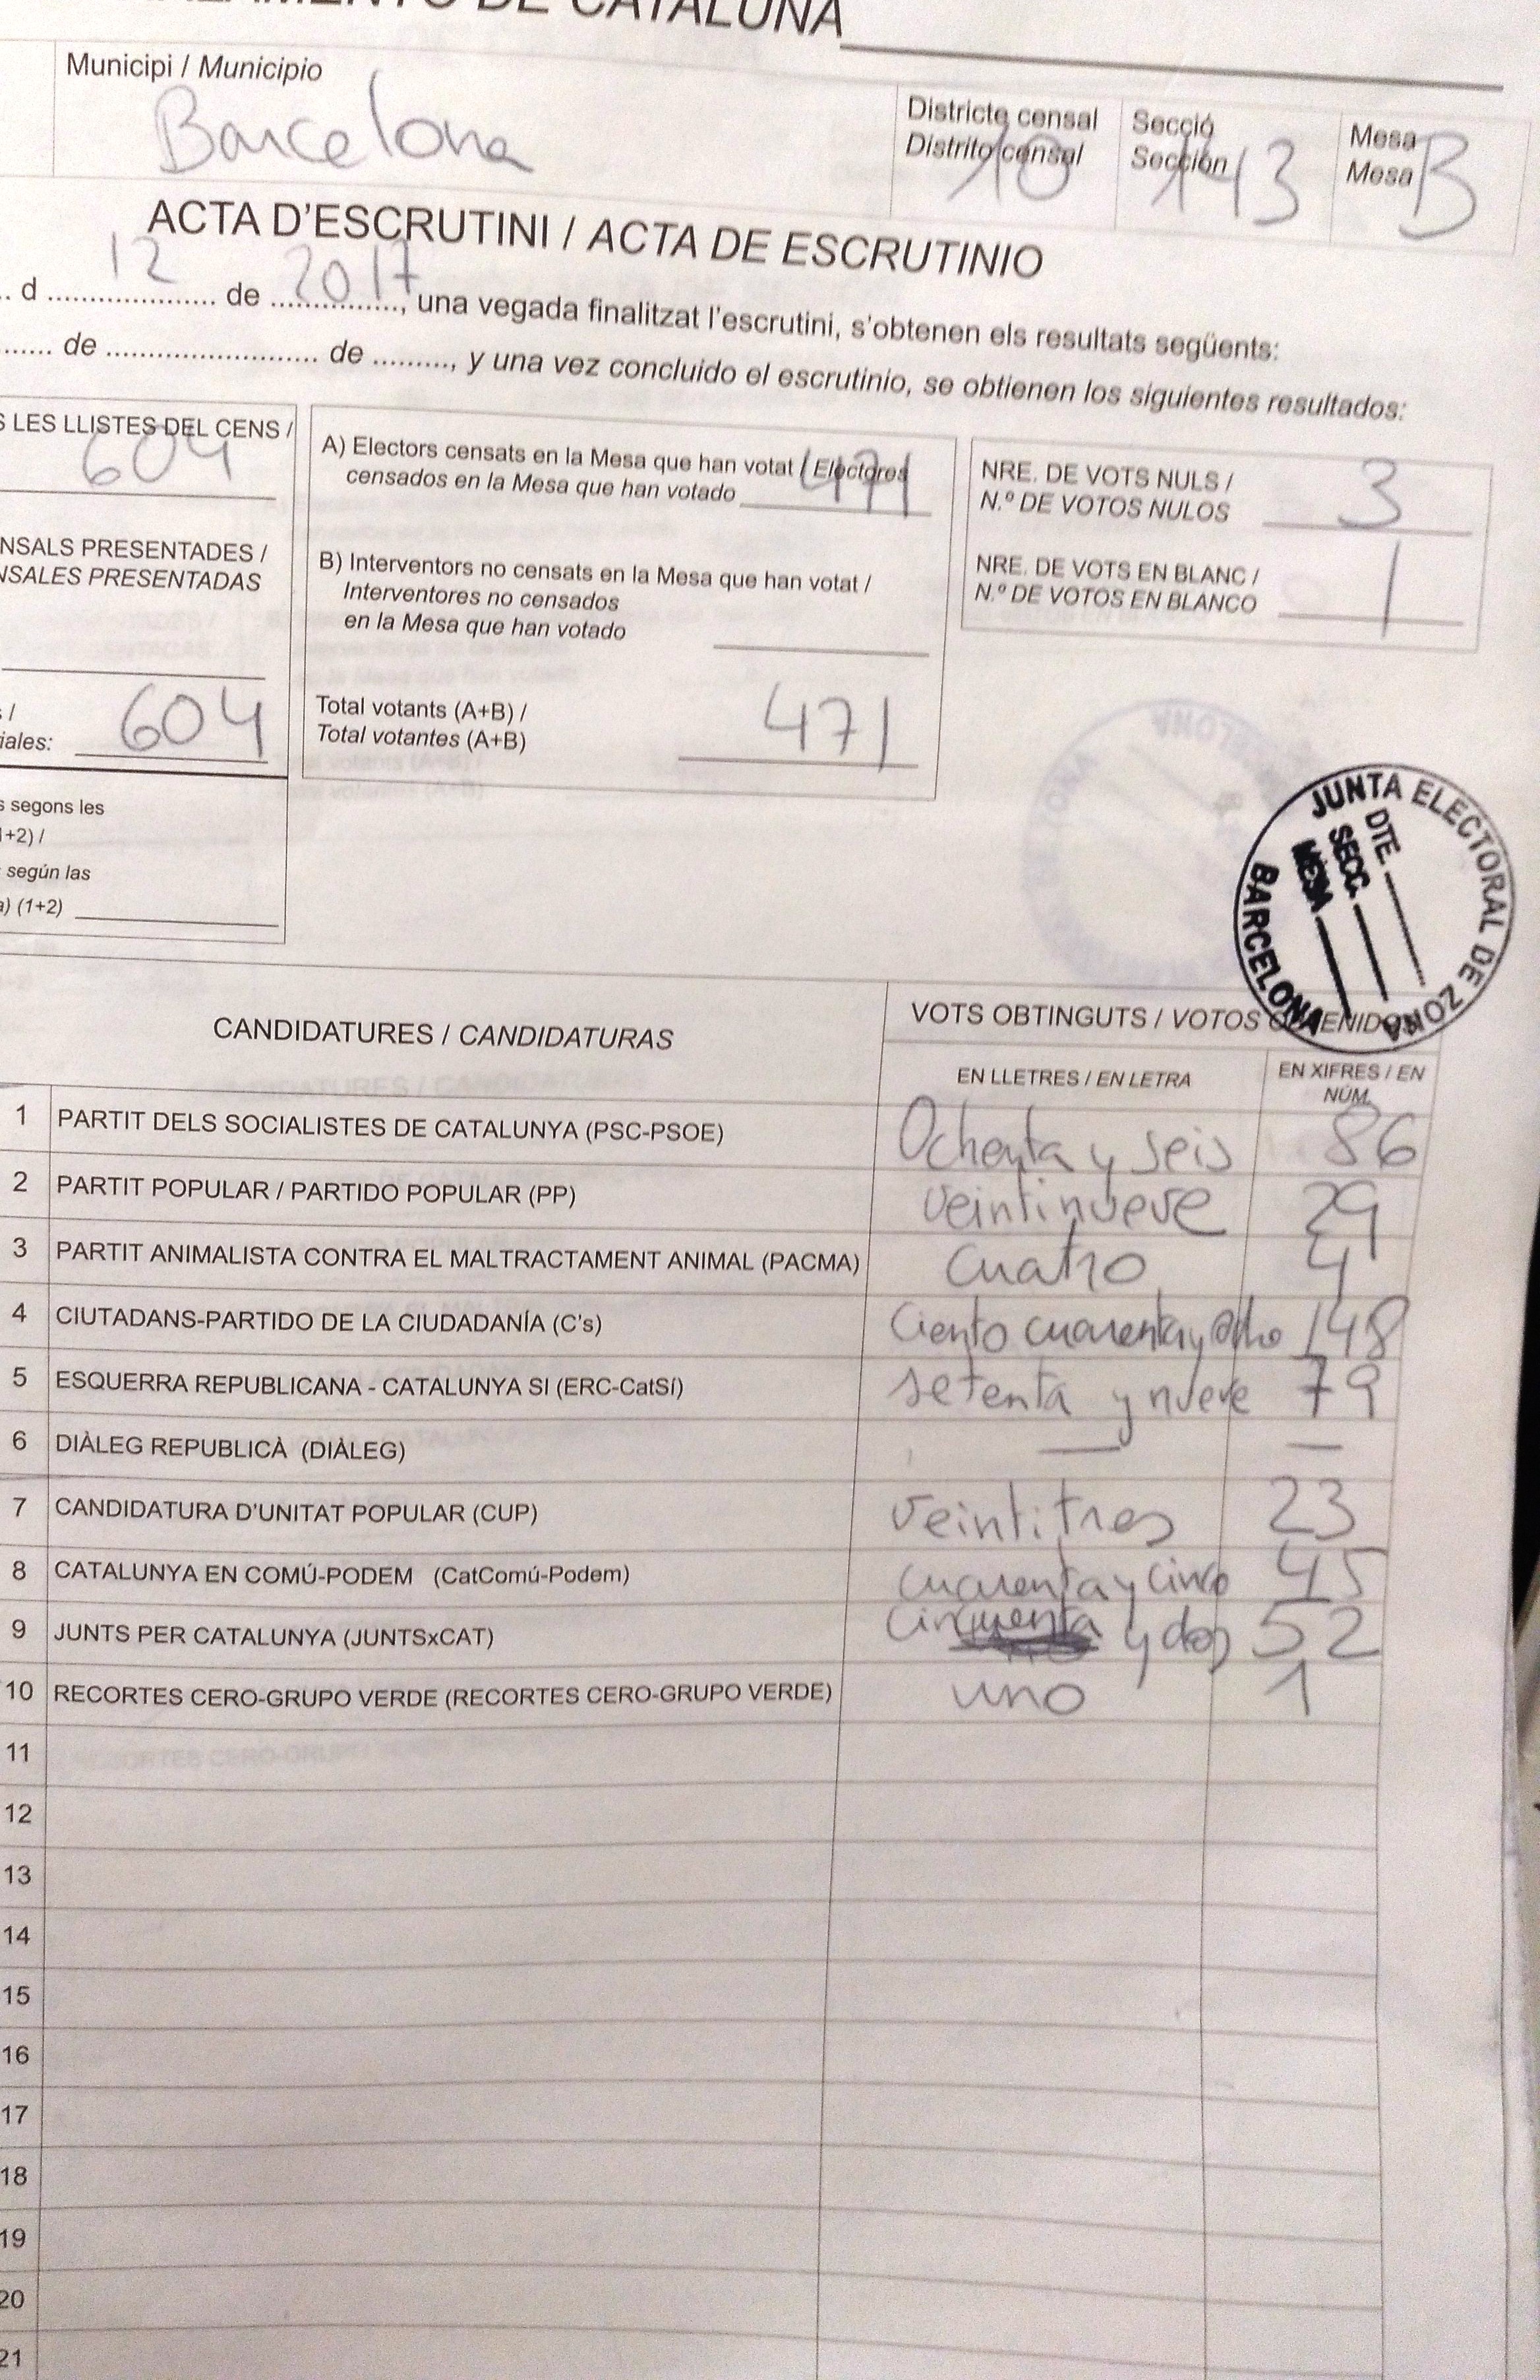 DE CATALUÑA
Municipi / Municipio
Barcelona
Districte censal
Distrito censal
10
Secció
Sección
143
Mesa
Mesa
B
ACTA D'ESCRUTINI / ACTA DE ESCRUTINIO
d 12 de 2017, una vegada finalitzat l'escrutini, s'obtenen els resultats següents:
de de , y una vez concluido el escrutinio, se obtienen los siguientes resultados:
LES LLISTES DEL CENS /
604
PRESENTADES /
PRESENTADAS
604
segons les
1+2) /
según las
(1+2)
A) Electors censats en la Mesa que han votat / Electores
censados en la Mesa que han votado 471
B) Interventors no censats en la Mesa que han votat /
Interventores no censados
en la Mesa que han votado
Total votants (A+B) /
Total votantes (A+B) 471
NRE. DE VOTS NULS /
N.º DE VOTOS NULOS 3
NRE. DE VOTS EN BLANC /
N.º DE VOTOS EN BLANCO 1
JUNTA ELECTORAL DE ZONA
BARCELONA
DTE.
SECC.
MESA
CANDIDATURES / CANDIDATURAS
VOTS OBTINGUTS / VOTOS OBTENIDOS
EN LLETRES / EN LETRA
EN XIFRES / EN
NÚM.
1 PARTIT DELS SOCIALISTES DE CATALUNYA (PSC-PSOE) Ochenta y seis 86
2 PARTIT POPULAR / PARTIDO POPULAR (PP) veintinueve 29
3 PARTIT ANIMALISTA CONTRA EL MALTRACTAMENT ANIMAL (PACMA) cuatro 4
4 CIUTADANS-PARTIDO DE LA CIUDADANÍA (C's) Ciento cuarenta y ocho 148
5 ESQUERRA REPUBLICANA - CATALUNYA SI (ERC-CatSí) setenta y nueve 79
6 DIÀLEG REPUBLICÀ (DIÀLEG) — —
7 CANDIDATURA D'UNITAT POPULAR (CUP) veintitres 23
8 CATALUNYA EN COMÚ-PODEM (CatComú-Podem) cuarenta y cinco 45
9 JUNTS PER CATALUNYA (JUNTSxCAT) cincuenta y dos 52
10 RECORTES CERO-GRUPO VERDE (RECORTES CERO-GRUPO VERDE) uno 1
11
12
13
14
15
16
17
18
19
20
21